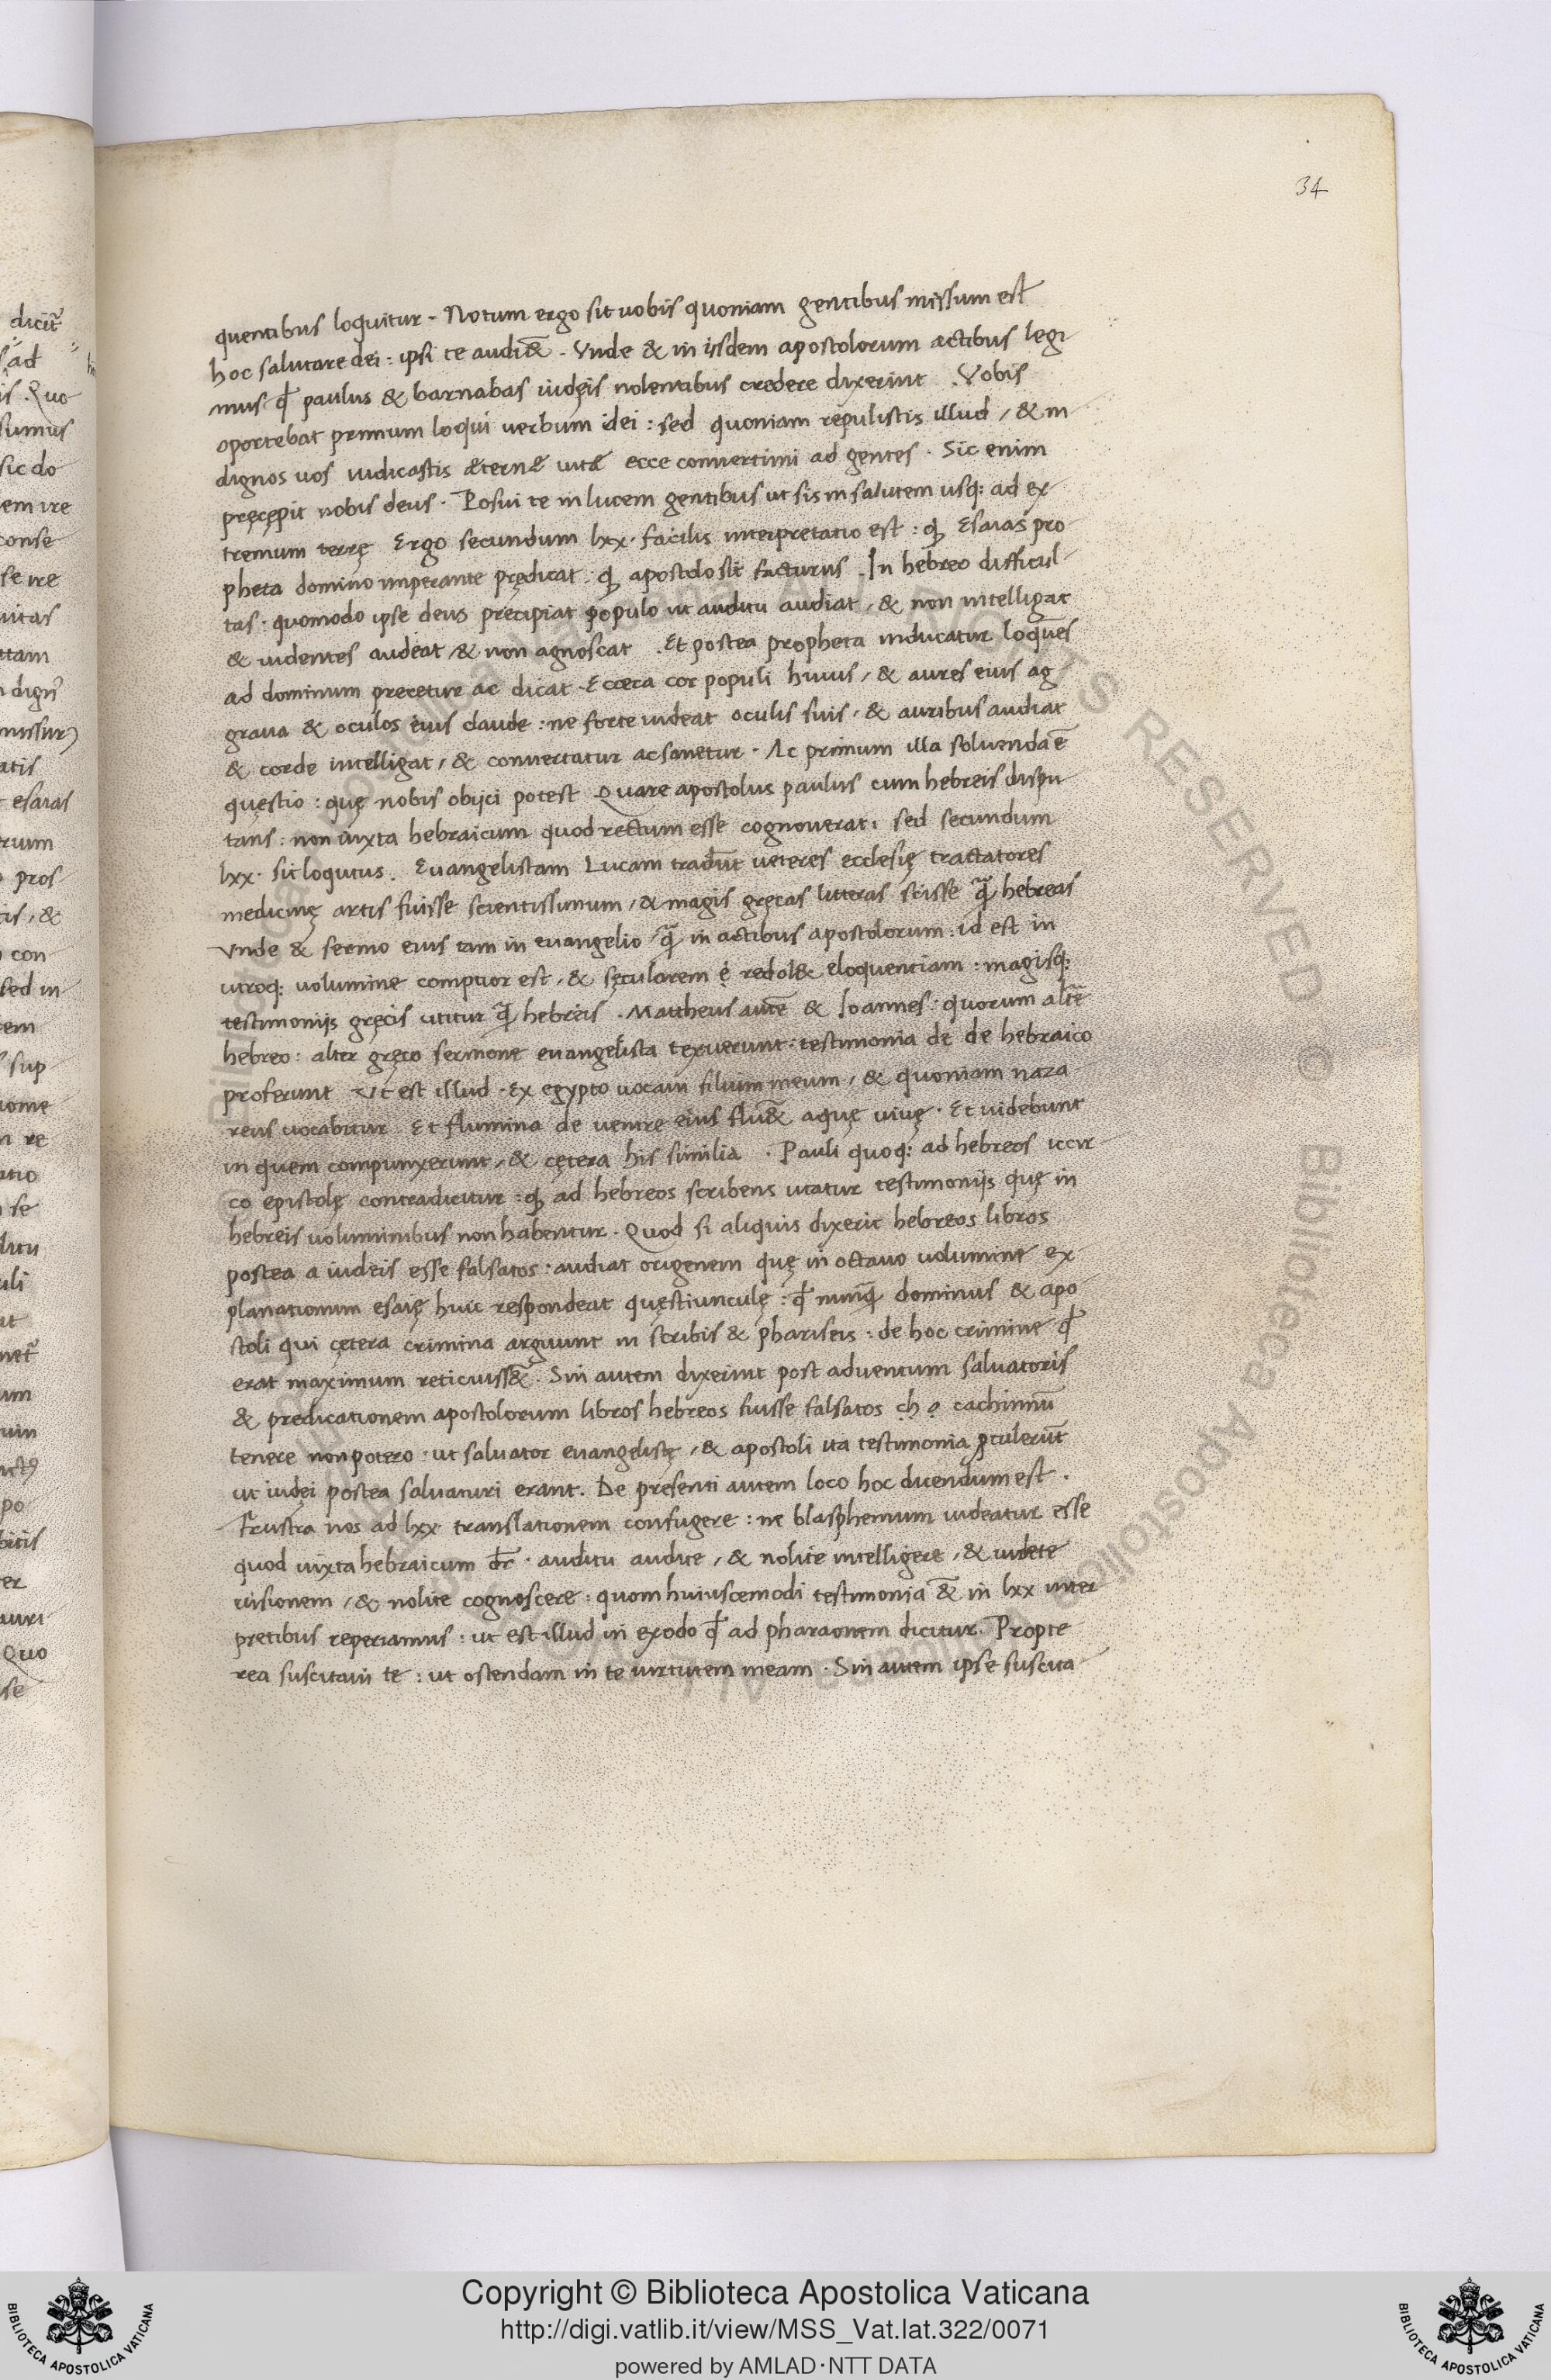 34
quentibus loquitur. Notum ergo sit uobis quoniam gentibus missum est
hoc salutare dei: ipsi te audi&̃. Vnde & in iisdem apostolorum actibus legi
mus qđ paulus & barnabas iudęis nolentibus credere dixerint. Vobis
oportebat primum loqui uerbum idei: sed quoniam repulistis illud, & in
dignos uos iudicastis æternæ uitæ ecce conuertimi ad gentes. Sic enim
pręcępit nobis deus. Posui te in lucem gentibus ut sis in salutem usq: ad ex
tremum terrę Ergo secundum lxx. facilis interpretatio est: qꝫ Esaias pro
pheta domino imperante prędicat: qꝫ apostolo sit facturus. In hebreo difficul
tas: quomodo ipse deus precipiat populo ut auditu audiat, & non intelligat
& uidentes audeat, & non agnoscat. Et postea propheta inducatur loqũes
ad dominum precetur ac dicat. Excæca cor populi huius, & aures eius ag
graua & oculos eius claude: ne forte uideat oculis suis, & auribus audiat
& corde intelligat, & conuertatur ac sanetur. Ac primum illa soluenda ẽ
quęstio: quę nobis obijci potest Quare apostolus paulus cum hebreis dispu
tans: non iuxta hebraicum quod rectum esse cognouerat: sed secundum
lxx. sit loqutus. Euangelistam Lucam tradũt ueteres ecclesię tractatores
medicinę artis fuisse scientissimum, & magis gręcas litteras scisse q̃ hebreas
Vnde & sermo eius tam in euangelio q̃ in actibus apostolorum: id est in
utroq: uolumine comptior est, & sęcularem ẹ́ redol& eloquentiam: magisq:
testimonijs gręcis utitur q̃ hebreis. Mattheus autẽ & Ioannes: quorum altẽ
hebreo: alter gręco sermone euangelista texuerunt: testimonia de de hebraico
proferunt Vt est illud. Ex egypto uocaui filium meum, & quoniam naza
reus uocabitur Et flumina de uentre eius flu&̃ aquę viuę. Et videbunt
in quem compunxerunt, & cętera his similia. Pauli quoq: ad hebreos iccir
co epistolę contradicitur: qꝫ ad hebreos scribens utatur testimonijs quę in
hebreis uoluminibus non habentur. Quod si aliquis dixerit hebreos libros
postea a iudeis esse falsatos: audiat origenem quę in octauo uolumine ex
planationum esaię huic respondeat quęstiunculę: qđ nunq̃ dominus & apo
stoli qui cętera crimina arguunt in scribis & phariseis: de hoc crimine qđ
erat maximum reticuiss&̃. Sin autem dixerint post aduentum saluatoris
& predicationem apostolorum libros hebreos fuisse falsatos c̣ḥ ọ cachinnũ
tenere non potero. ut saluator euangelistę, & apostoli ita testimonia ꝓtulerũt
ut iudęi postea saluaturi erant. De presenti autem loco hoc dicendum est.
Frustra nos ad lxx translationem confugere: ne blasphemum uideatur esse
quod iuxta hebraicum dr̃. auditu audite, & nolite intelligere, & uidete
uisionem, & nolite cognoscere: quom huiuscemodi testimonia &̃ in lxx inter
pretibus reperiamus: ut est illud in exodo qđ ad pharaonem dicitur. Propte
rea suscitaui te: ut ostendam in te uirtutem meam. Sin autem ipse suscita
Copyright © Biblioteca Apostolica Vaticana
http://digi.vatlib.it/view/MSS_Vat.lat.322/0071
powered by AMLAD·NTT DATA
BIBLIOTECA APOSTOLICA VATICANA
BIBLIOTECA APOSTOLICA VATICANA